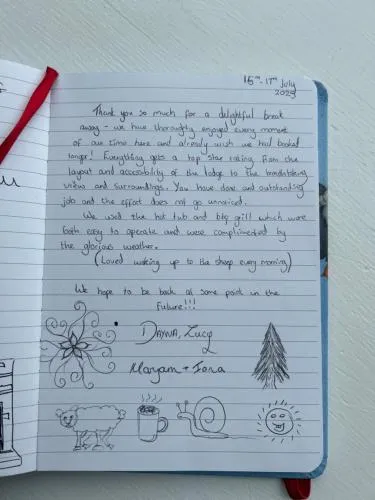 15th - 17th July
2025
Thank you so much for a delightful break
away - we have thoroughly enjoyed every moment
of our time here and already wish we had booked
longer! Everything gets a top star rating from the
layout and accessibility of the lodge to the breathtaking
views and surroundings. You have done and outstanding
job and the effort does not go unnoticed.
We used the hot tub and bbq grill which were
both easy to operate and were complimented by
the glorious weather.
(Loved waking up to the sheep every morning)
We hope to be back at some point in the
future!!!
Lucy
Maryam + Iona